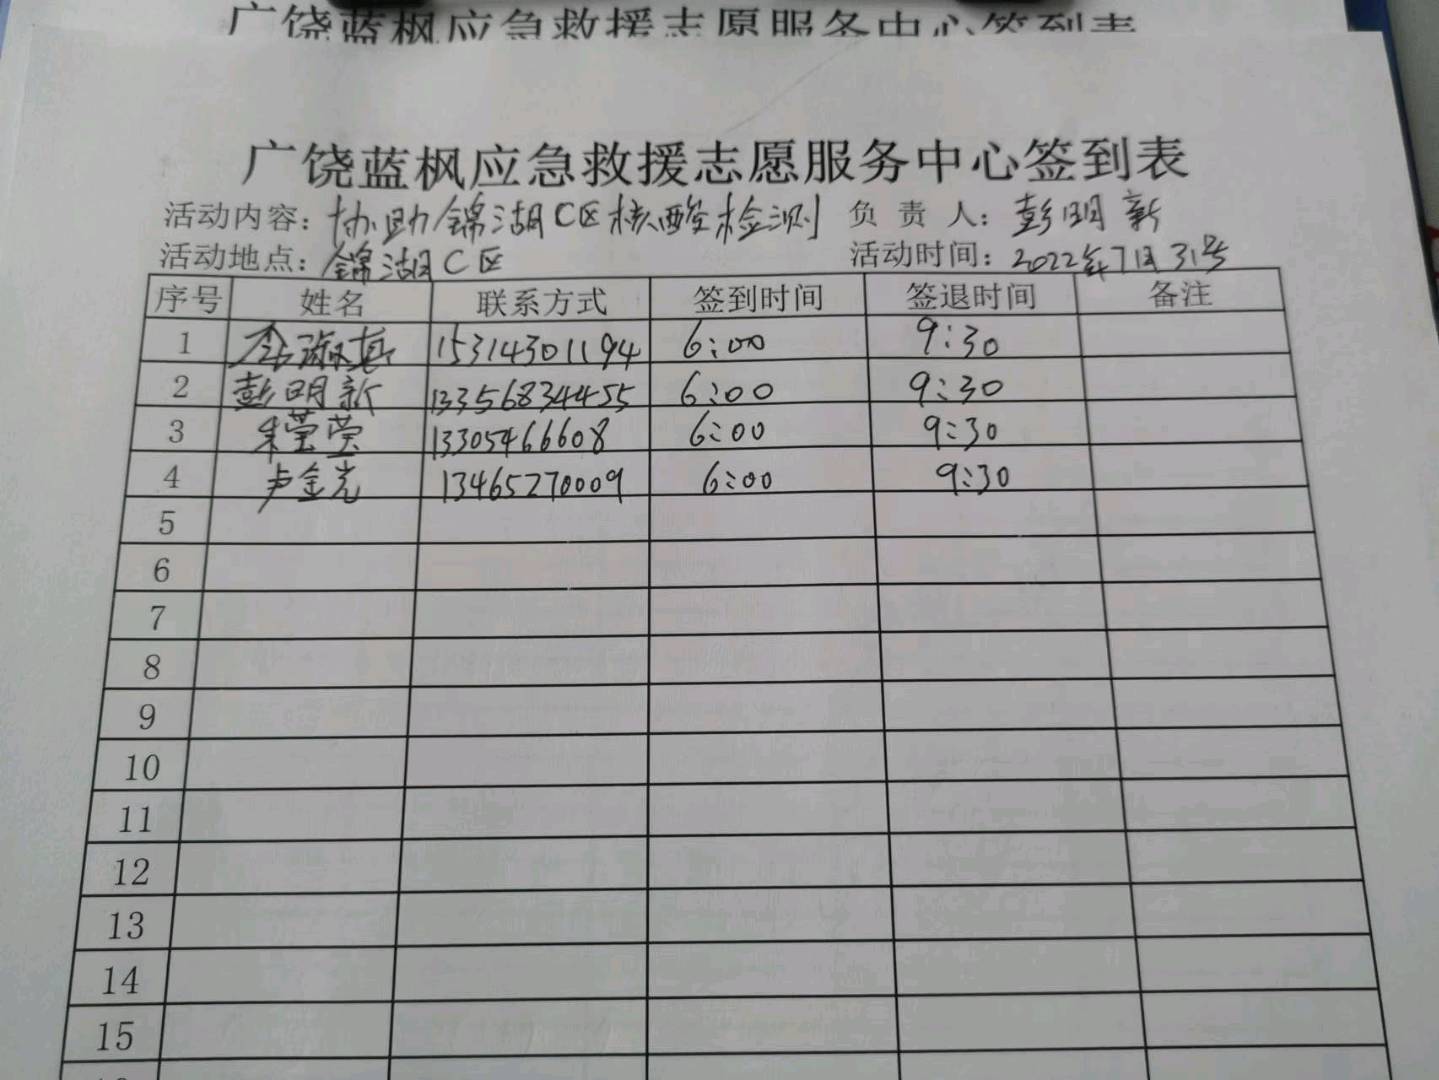 广饶蓝枫应急救援志愿服务中心签到表
广饶蓝枫应急救援志愿服务中心签到表
活动内容：协助锦湖C区核酸检测 负责人：彭明新
活动地点：锦湖C区 活动时间：2022年7月31号
序号 姓名 联系方式 签到时间 签退时间 备注
1 李 15314301194 6:00 9:30
2 彭明新 13356834455 6:00 9:30
3 朱莹莹 13305466608 6:00 9:30
4 卢金光 13465270009 6:00 9:30
5
6
7
8
9
10
11
12
13
14
15